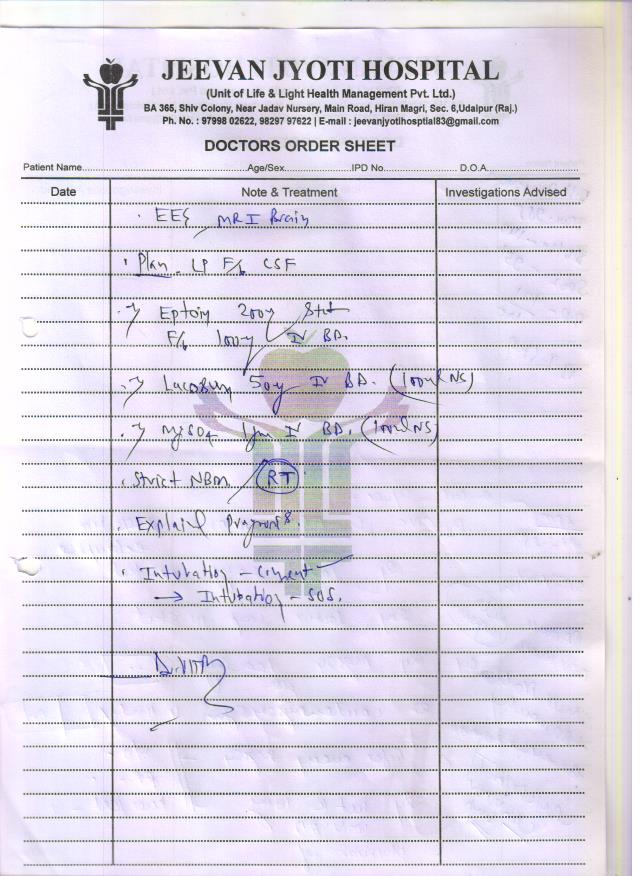 JEEVAN JYOTI HOSPITAL
(Unit of Life & Light Health Management Pvt. Ltd.)
BA 365, Shiv Colony, Near Jadav Nursery, Main Road, Hiran Magri, Sec. 6,Udaipur (Raj.)
Ph. No. : 97998 02622, 98297 97622 | E-mail : jeevanjyotihosptial83@gmail.com
DOCTORS ORDER SHEET
Patient Name Age/Sex IPD No D.O.A.
Date Note & Treatment Investigations Advised
EEG MRI Brain
Plan LP F/b CSF
Eptoin 200mg Stat
F/b 100mg IV BD.
50mg IV BD. (100ml NS)
MgSO4 1gm IV BD. (100ml NS)
Strict NBM RT
Explained Prognosis
Intubation - Consent
→ Intubation - SOS.